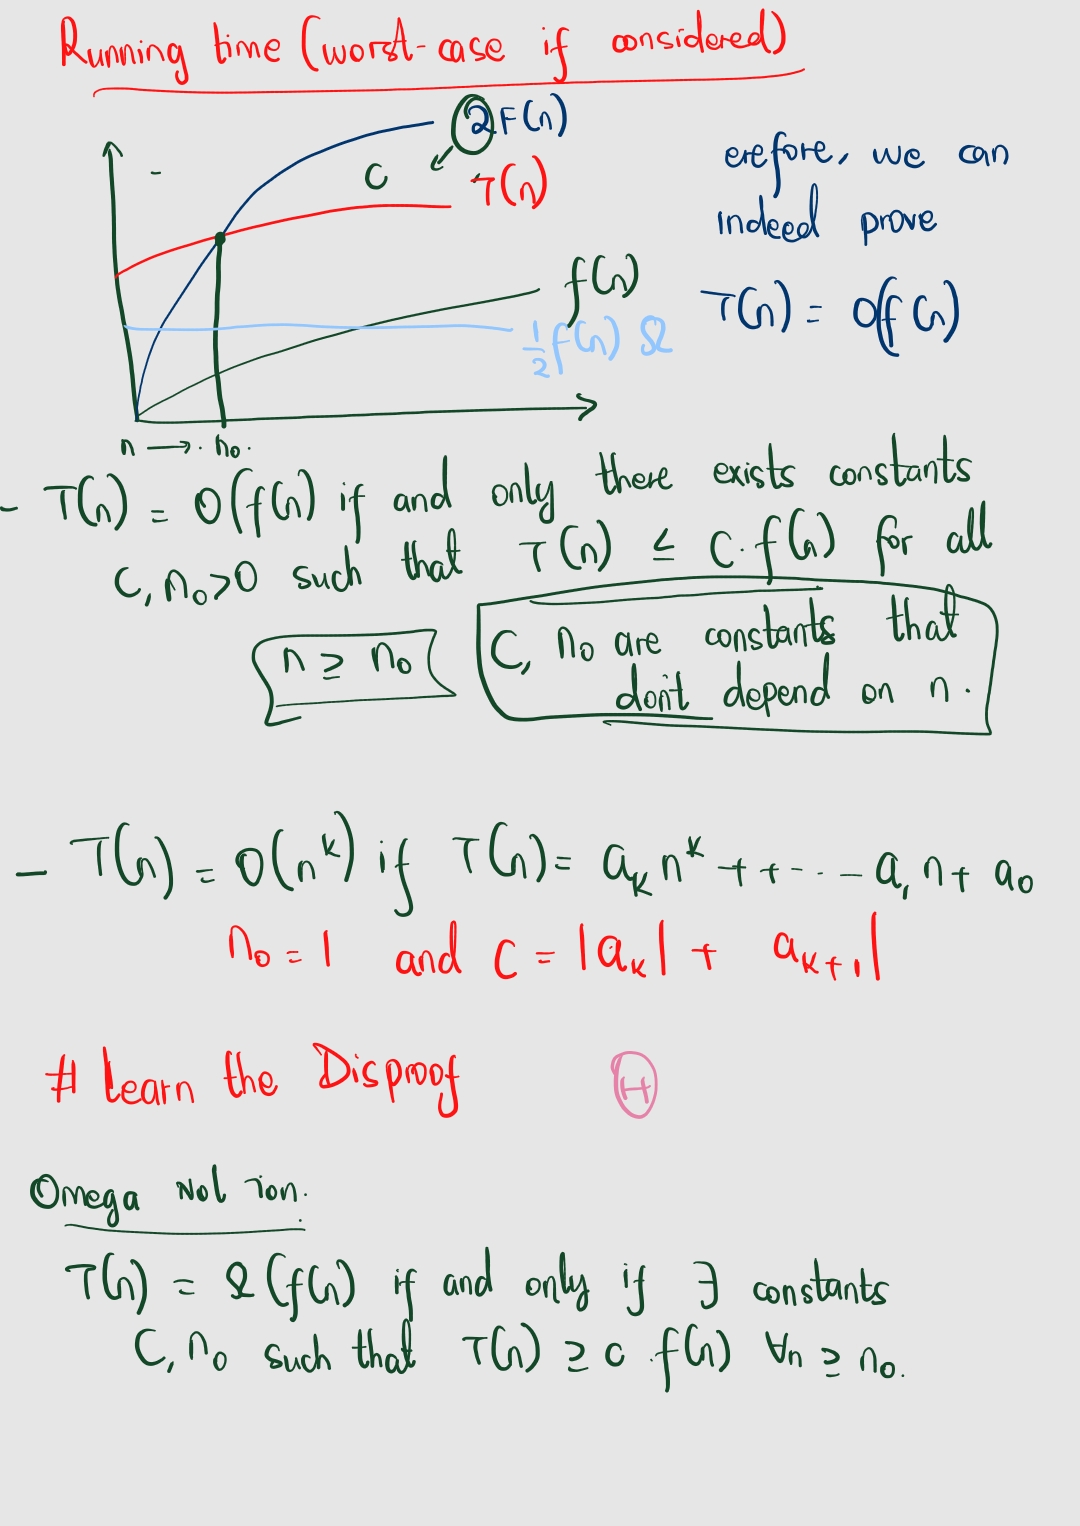 Running time (worst-case if considered)
2F(n)
C
T(n)
f(n)
1/2 f(n) Ω
n → . n₀.
erefore, we can
indeed prove
T(n) = O(f(n)
- T(n) = O(f(n) if and only there exists constants
C, n₀>0 such that T(n) ≤ C.f(n) for all
n ≥ n₀
C, n₀ are constants that
don't depend on n.
- T(n) = O(n^k) if T(n)= a_k n^k + + - - - a₁ n + a₀
n₀ = 1 and C = |a_k| + a_{k+1}|
# Learn the Disproof
Θ
Omega Notion.
T(n) = Ω(f(n) if and only if ∃ constants
C, n₀ such that T(n) ≥ c.f(n) ∀n ≥ n₀.